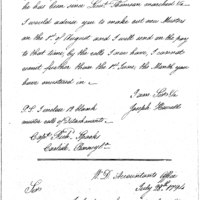 he has been since Lieut. Thomson marched &c
I would advise you to make out new Musters
on the 1st of August and I will send on the pay
to that time; by the rolls I now have, I cannot
muster further than the 1st June, the Month you
have mustered in
I am Sir &c
P.S. I enclose a blank Joseph Howell
muster roll of Detachments
Capt. Spark
Carlisle Pennsylva.
W. D. Accountants Office
Sir July 28th 1794